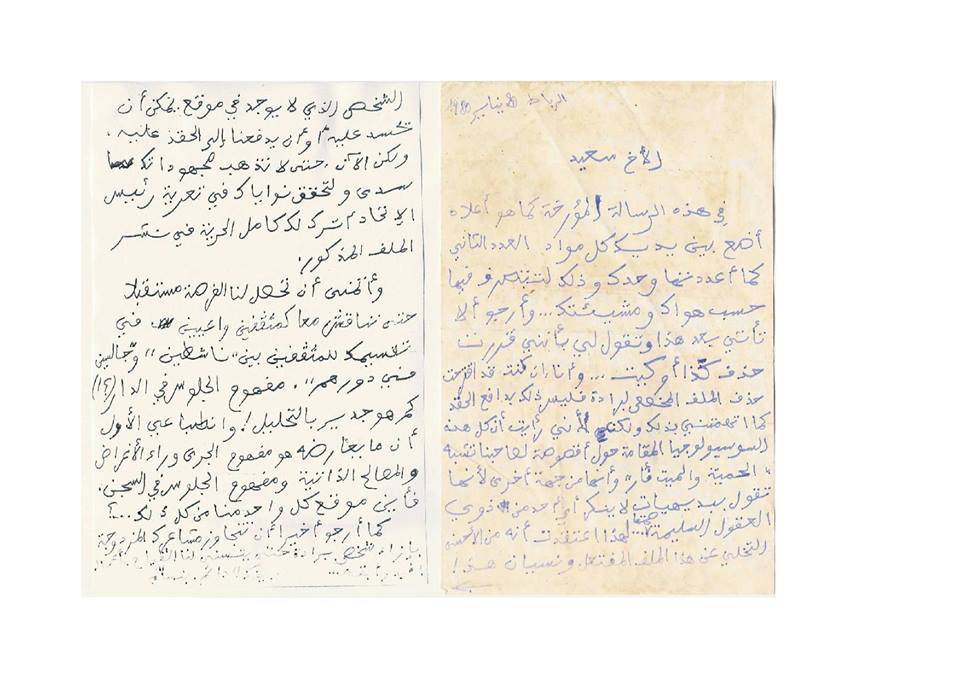 الرباط 8 يناير 1980
الأخ سعيد
في هذه الرسالة المؤرخة كما هو أعلاه
أضع بين يديك كل مواد العدد الثاني
كما أعددتها وحدك وذلك لتتصرف فيها
حسب هواك ومشيئتك... وأرجو ألا
تأتي بعد هذا وتقول لي بأنني قررت
حذف كذا أو كيت ... وأنا إن كنت قد اقترحت
حذف الملف المخصص لبرادة فليس ذلك بدافع الحقد
كما اتهمتني بذلك ولكن لأني رأيت أن كل هذه
السوسيولوجيا المقامة حول أقصوصة لصاحبنا تشبه
الحمية وأنها من جهة أخرى لأنها
تقول بديهيات لا ينكر أي أحد من ذوي
العقول السليمة لهذا اعتقدت أنه من الأحسن
التخلي عن هذا الملف المفتعل ونسيان
الشخص الذي لا يوجد في موقع يمكن أن
نحسد عليه أو أن يدفعنا إلى الحقد عليه.
ولكن الآن، حتى لا تذهب مجهوداتك
سدى ولتحقق نواياك في تعرية رئيس
الاتحاد أترك لك كامل الحرية في نشر
الملف المذكور.
وأتمنى أن تحصل لنا الفرصة مستقبلا
حتى نناقش معا كمثقفين واعيين في
تقسيمك للمثقفين بين "ناشطين" و"جالسين
في دورهم". مفهوم الجلوس في الدار (؟!)
كم هو جدير بالتحليل! وانطباعي الأول
أن ما يعارضه هو مفهوم الجري وراء الأغراض
والمصالح الذاتية ومفهوم الجلوس في السجن.
فأين موقع كل واحد منا من كل ذلك...؟
كما أرجو أخيرا أن تتجاوز مشاعرك المزدوجة
بإزاء شخص برادة حتى يتسنى لنا